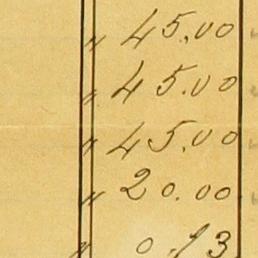 " 45.00
" 45.00
" 45.00
" 20.00
" 0.13